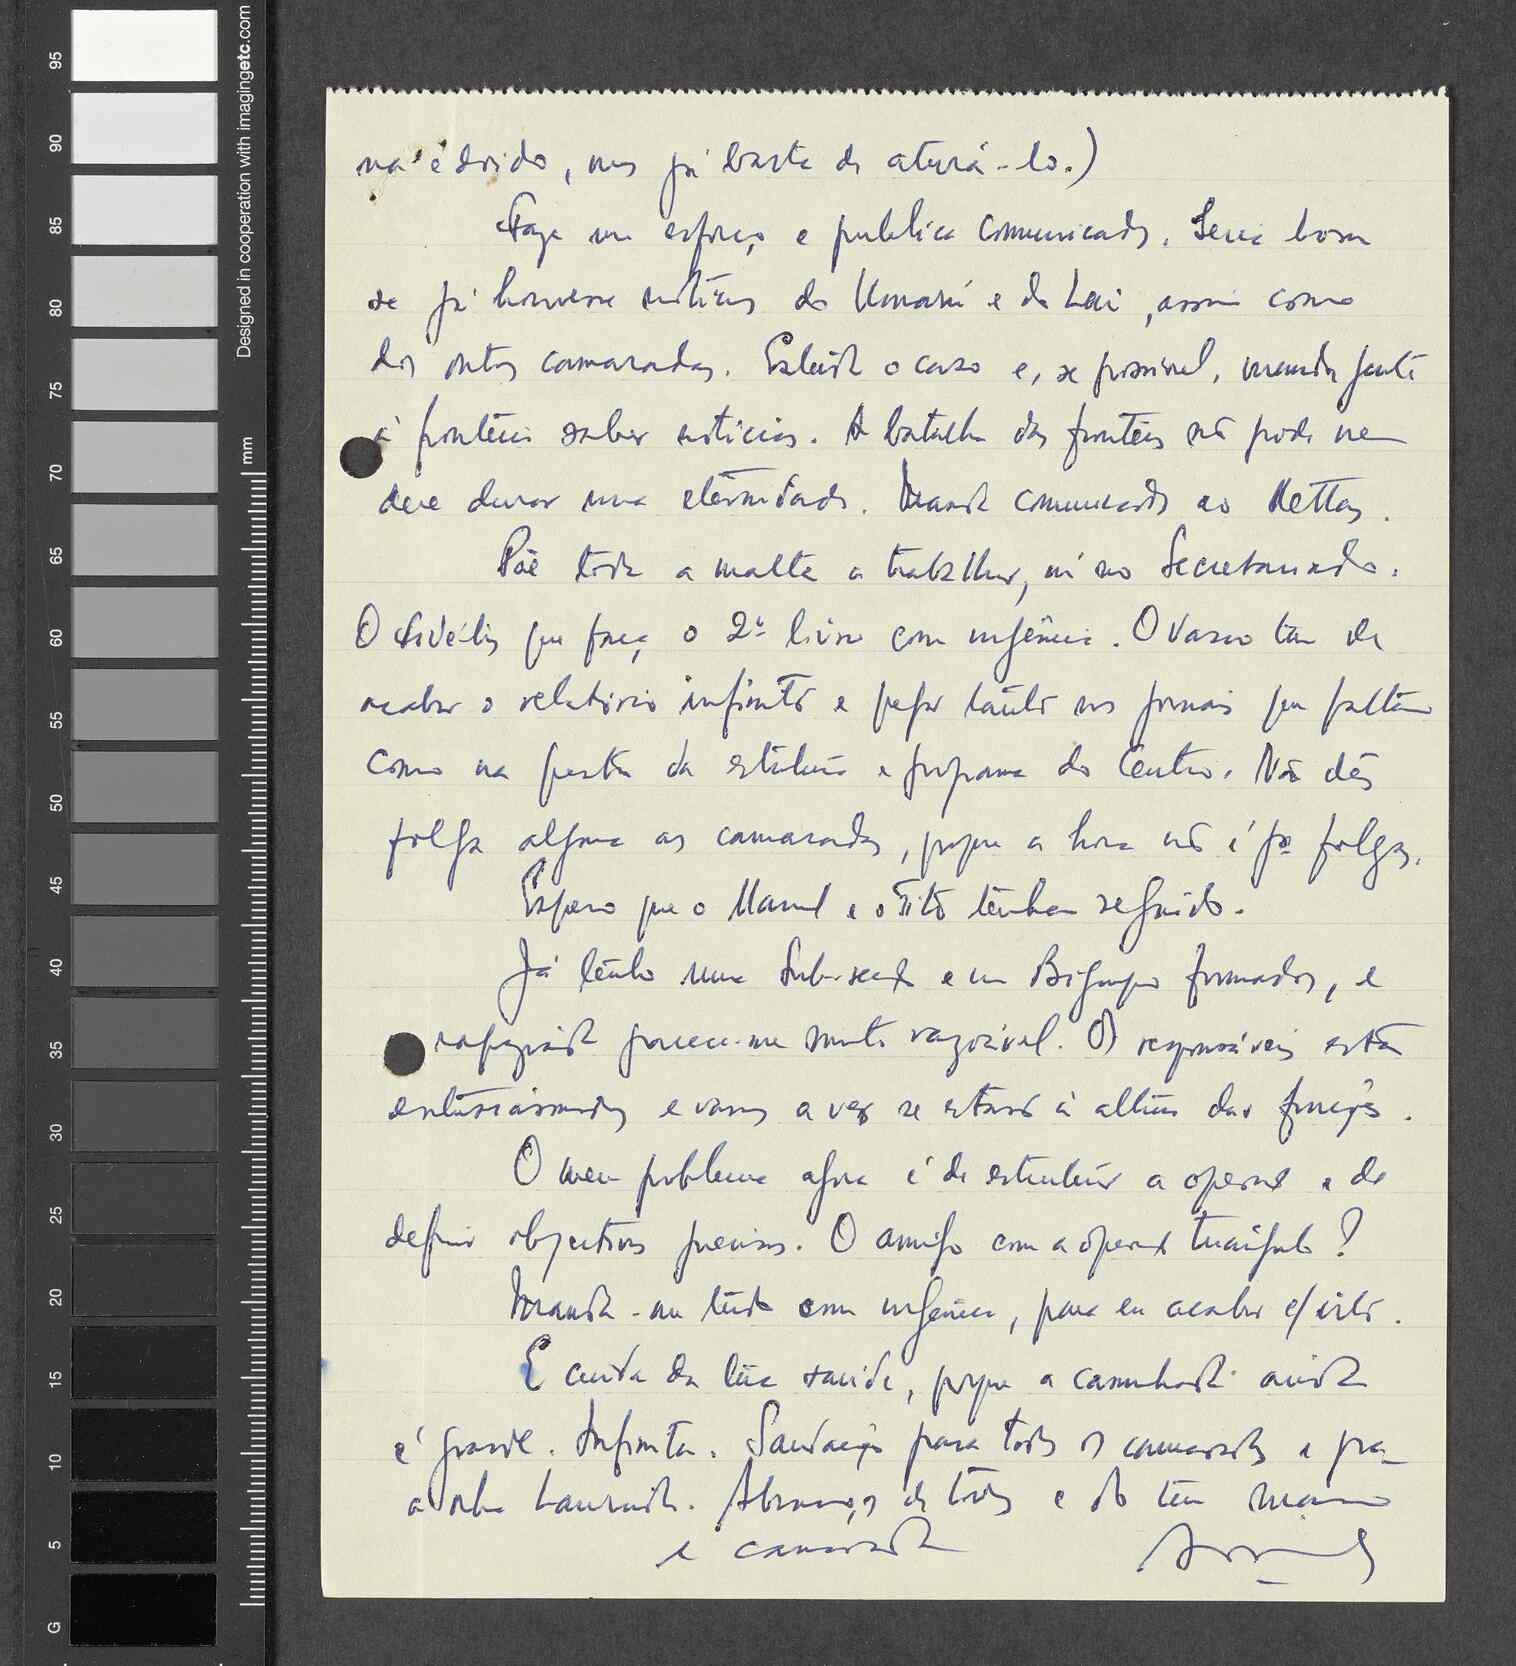 não é doido, mas já basta de aturá-lo.)
Faze um esforço e publica comunicados. Seria bom
se já houvesse notícias do Umarú e do Lai, assim como
dos outros camaradas. Estuda o caso e, se possível, manda gente
à fronteira saber notícias. A batalha das fronteiras não pode nem
deve durar uma eternidade. Manda comunicados ao Mettas.
Põe toda a malta a trabalhar, aí no Secretariado.
O que faça o 2º livro com urgência. O Vasco tem de
acabar o relatório infinito e pegar tanto nos jornais que faltam
como na questão da estrutura e programa do Centro. Não dês
folga alguma aos camaradas, porque a hora não é pª folgas.
Espero que o Manuel e o Tito tenham seguido.
Já tenho uma Sub-secção e um Bigrupo formados, e
a rapaziada parece-me muito razoável. Os responsáveis estão
entusiasmados e vamos a ver se estarão à altura das funções.
O meu problema agora é de estruturar a operação e de
definir objectivos precisos. O amigo com a operação triângulo?
Manda-me tudo com urgência, para eu acabar c/ isto.
E cuida da tua saúde, porque a caminhada ainda
é grande. Infinita. Saudações para todos os camaradas e para
a velha Abraços de todos e do teu mano
e camarada
95
90
85
80
75
70
65
60
55
50
45
40
35
30
25
20
15
10
5
G
Designed in cooperation with imagingetc.com
mm